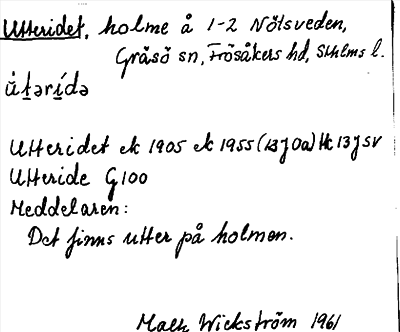 Utteridet, holme å 1-2 Nötsveden,
Gräsö sn, Frösåkers hd, Sthlms l.
ù̀t̠ərí̠də
Utteridet ek 1905 ek 1955 (13J0a) Hk 13J SV
Utteride G100
Meddelaren:
Det finns utter på holmen.
Mats Wickström 1961